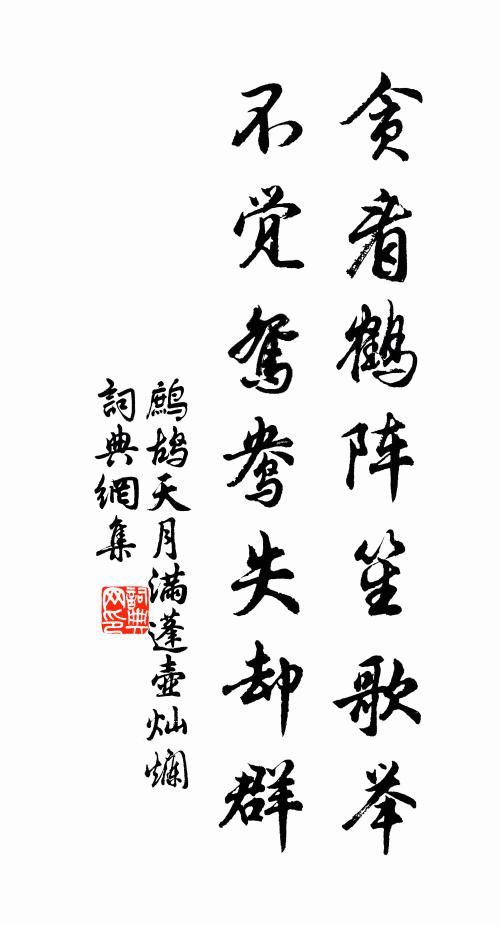 贪看鹤阵笙歌举
不觉鸳鸯失却群
鷓鴣天月滿蓬壺灿爛
詞典網集
詞典网印